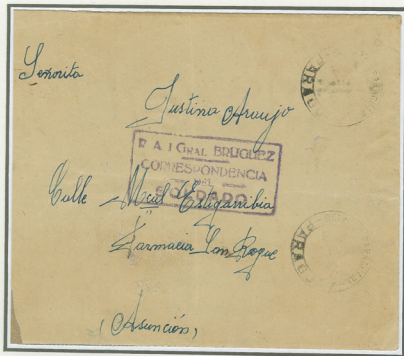 Señorita
Justina Araujo
R A I GRAL BRUGUEZ
CORRESPONDENCIA
DEL
SOLDADO
Calle Mcal Estigarribia
Farmacia San Roque
(Asunción)